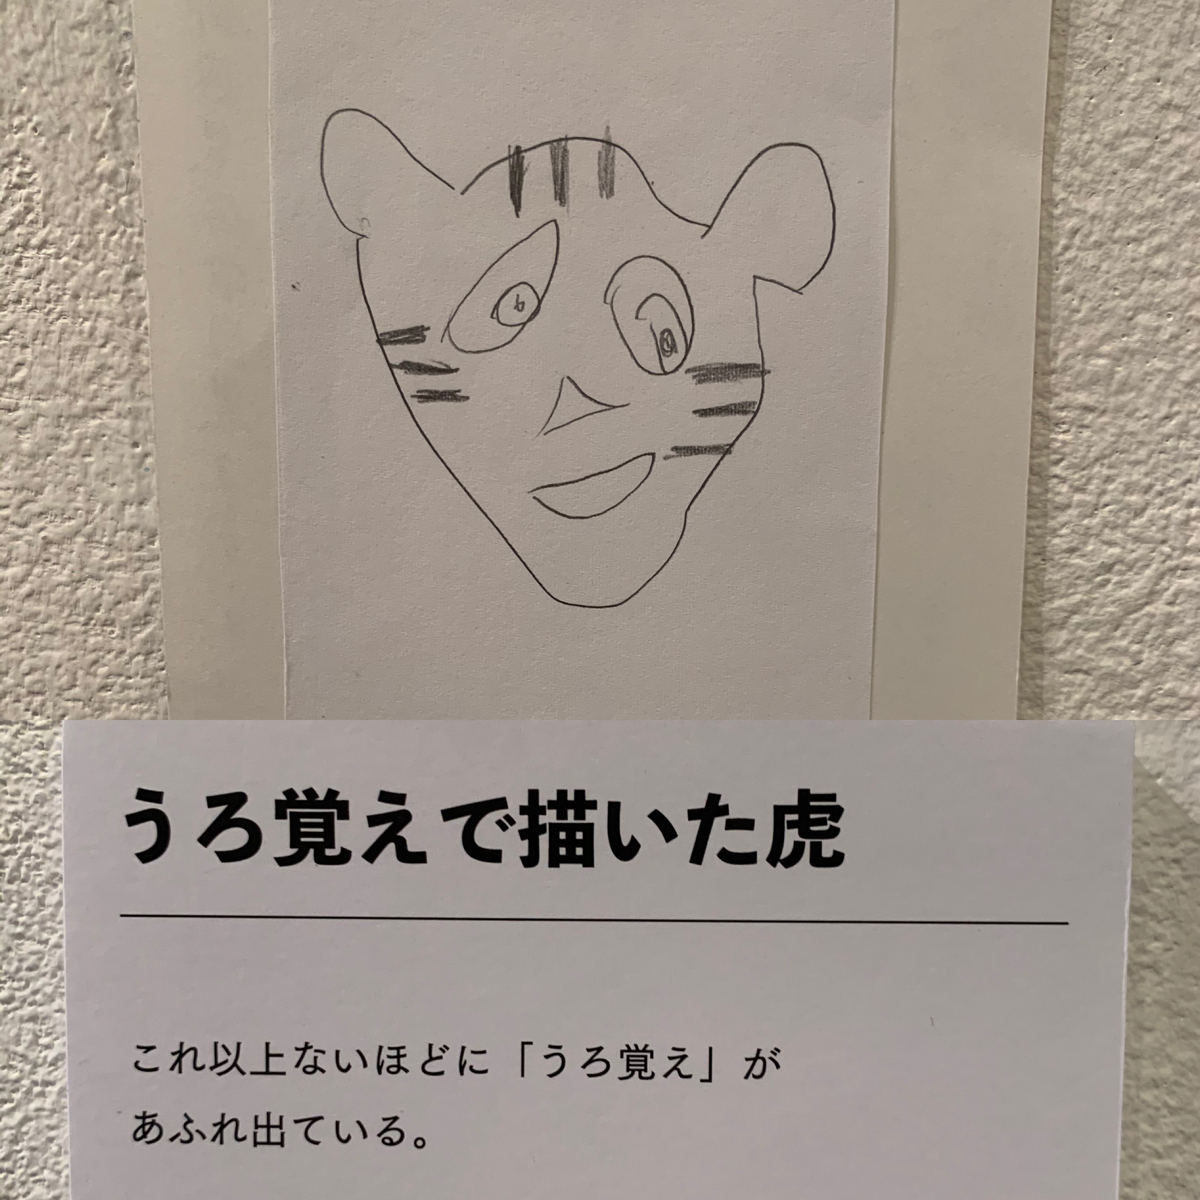 うろ覚えで描いた虎
これ以上ないほどに「うろ覚え」が
あふれ出ている。